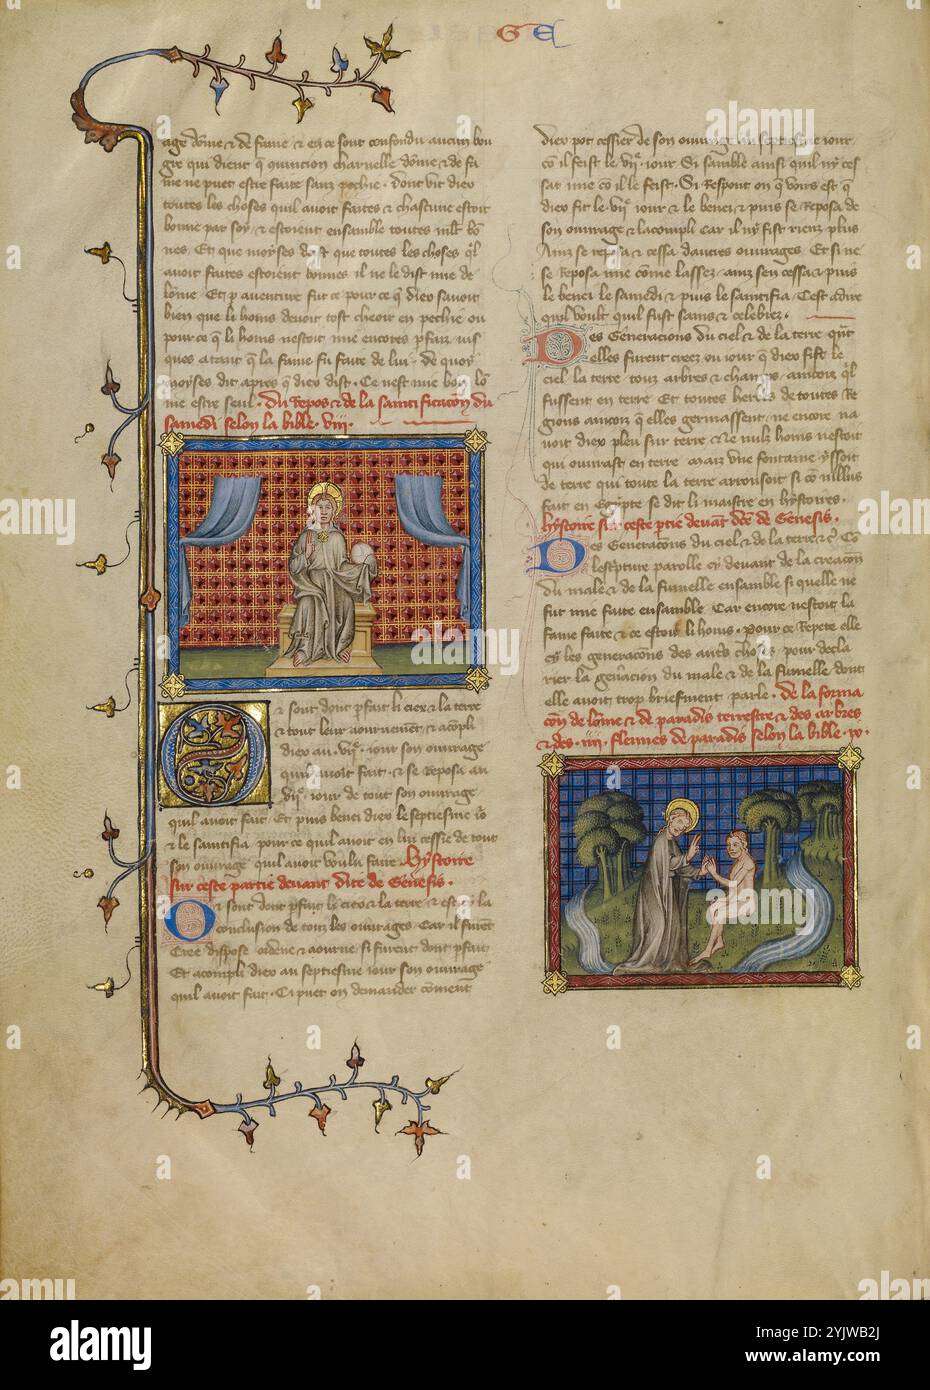 G E
age dome & de fame & en ce sont confondu aucun bou
gre qui dient q͂ commction charnelle dome & de fa
me ne puet estre faite sanz pechie. dont vit dieu
toutes les choses quil auoit faites & chascune estoit
bonne par soy, & estoient ensamble toutes mlt bo
nes. Et que moyses dist que toutes les choses ql
auoit faites estoient bonnes il ne le dist mie de
lome. Et p auenture fut ce pour ce q͂ dieu sauoit
bien que li homs deuoit tost cheoir en pechie ou
pour ce q͂ li homs nestoit mie encores pfaiz ius
ques atant q͂ la fame fu faite de lui. de quoy
moyses dit apres q͂ dieu dist. Ce nest mie bon lo
me estre seul. Du Repos & de la saintificacon du
samedi selon la bible. viii.
& sont dont pfait li ciex & la terre
& tout leur aournement, & acopli
dieu au. vii͛. iour son ouurage
quil auoit fait. & se reposa au
vii͛. iour de tout son ouurage
quil auoit fait. Et puis benei dieu le septiesme io
& le saintifia, pour ce quil auoit en lui cessie de tout
son ouurage quil auoit voulu faire. hystoire
sur ceste partie deuant dite de Genesis.
Or sont dont pfait le ciel & la terre & est cy la
conclusion de touz les ouurages. Car il furent
Cree dispose ordene & aourne, si furent dont pfait
Et acompli dieu au septiesme iour son ouurage
quil auoit fait. Ci puet on demander coment
dieu pot cessier de son ouurage au septiesme iour
co il feist le vii͛. iour Si samble ainsi quil ny ces
sat mie co il le feist. Si Respont on q͂ voirs est q͂
dieu fit le. vii͛ iour & le benei, & puis se Reposa de
son ouurage & lacompli car il ny fist riens plus
Ainz se reposa & cessa dautres ouurages. Et si ne
se Reposa mie come lassez, ainz sen cessa & puis
le benei le samedi & puis le saintifia, Cest adire
quil voult quil fust sains & celebrez.
Des Generacions du ciel & de la terre qnt
elles furent creez ou iour q͂ dieu fist le
ciel la terre, touz arbres & champs, aincois ql
fussent en terre, Et toutes herbes de toutes Re
gions aincois q͂ elles germassent, ne encore na
uoit diex pleu sur terre & ne nulz homs nestoit
qui ouurast en terre. Maiz vne fontaine yssoit
de terre qui toute la terre arrousoit si co nillus
fait en Egypte se dit li maistre en hystoires.
hystoire sur ceste ptie deuant dite de Genesis.
Des Generacons du ciel & de la terre &c Co
lescripture parolle cy deuant de la creacon
du male & de la fumelle ensamble si quelle ne
fut mie faite ensamble. Car encore nestoit la
fame faite & ce estoit li homs. pour ce Repete elle
cy les generacons des autres choses, pour decla
rier la generacion du male & de la fumelle, dont
elle auoit trop briefment parle. de la forma
con de lome & de paradis terrestre & des arbres
& des. iiii. fleuues de paradis selon la bible. ix.
alamy
Image ID: 2YJWB2J
www.alamy.com